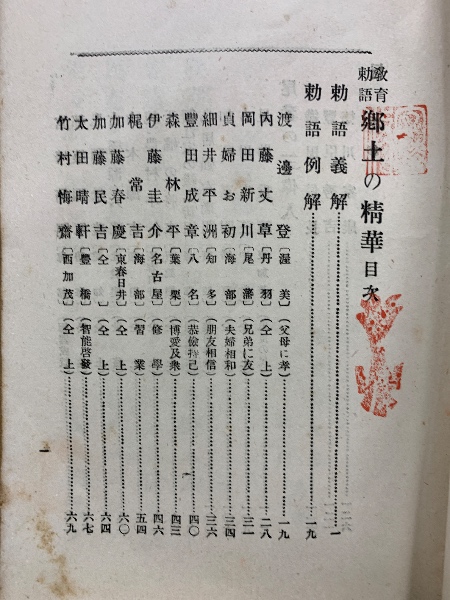 教育勅語 郷土の精華目次
勅語義解 一
勅語例解 一九
渡邊登 〔渥美〕 (父母に孝) 一九
內藤丈草 〔丹羽〕 (仝上) 二八
岡田新川 〔尾藩〕 (兄弟に友) 三一
貞婦お初 〔海部〕 (夫婦相和) 三四
細井平洲 〔知多〕 (朋友相信) 三六
豐田成章 〔八名〕 (恭儉持己) 四〇
森林平 〔葉栗〕 (博愛及衆) 四三
伊藤圭介 〔名古屋〕 (修學) 四六
梶常吉 〔海部〕 (習業) 五四
加藤春慶 〔東春日井〕 (仝上) 六〇
加藤民吉 〔仝〕 (仝上) 六四
太田晴軒 〔豐橋〕 (智能啓發) 六七
竹村悔齋 〔西加茂〕 (仝上) 六九
一